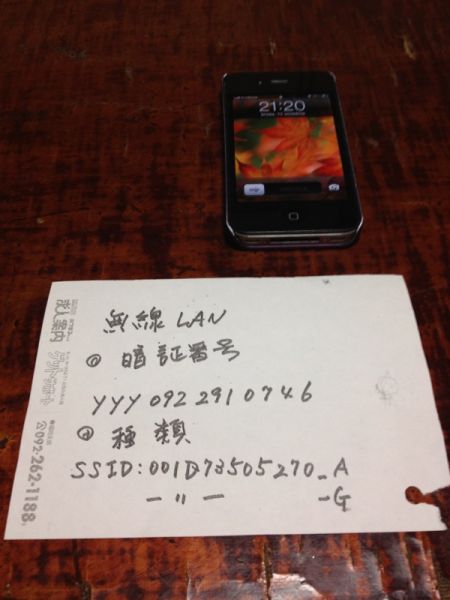 21:20
無線LAN
◎ 暗証番号
YYY 092 291 0746
◎ 種類
SSID:001D73505270_A
ー 〃 ー _G
求人案内
☎092-262-1188